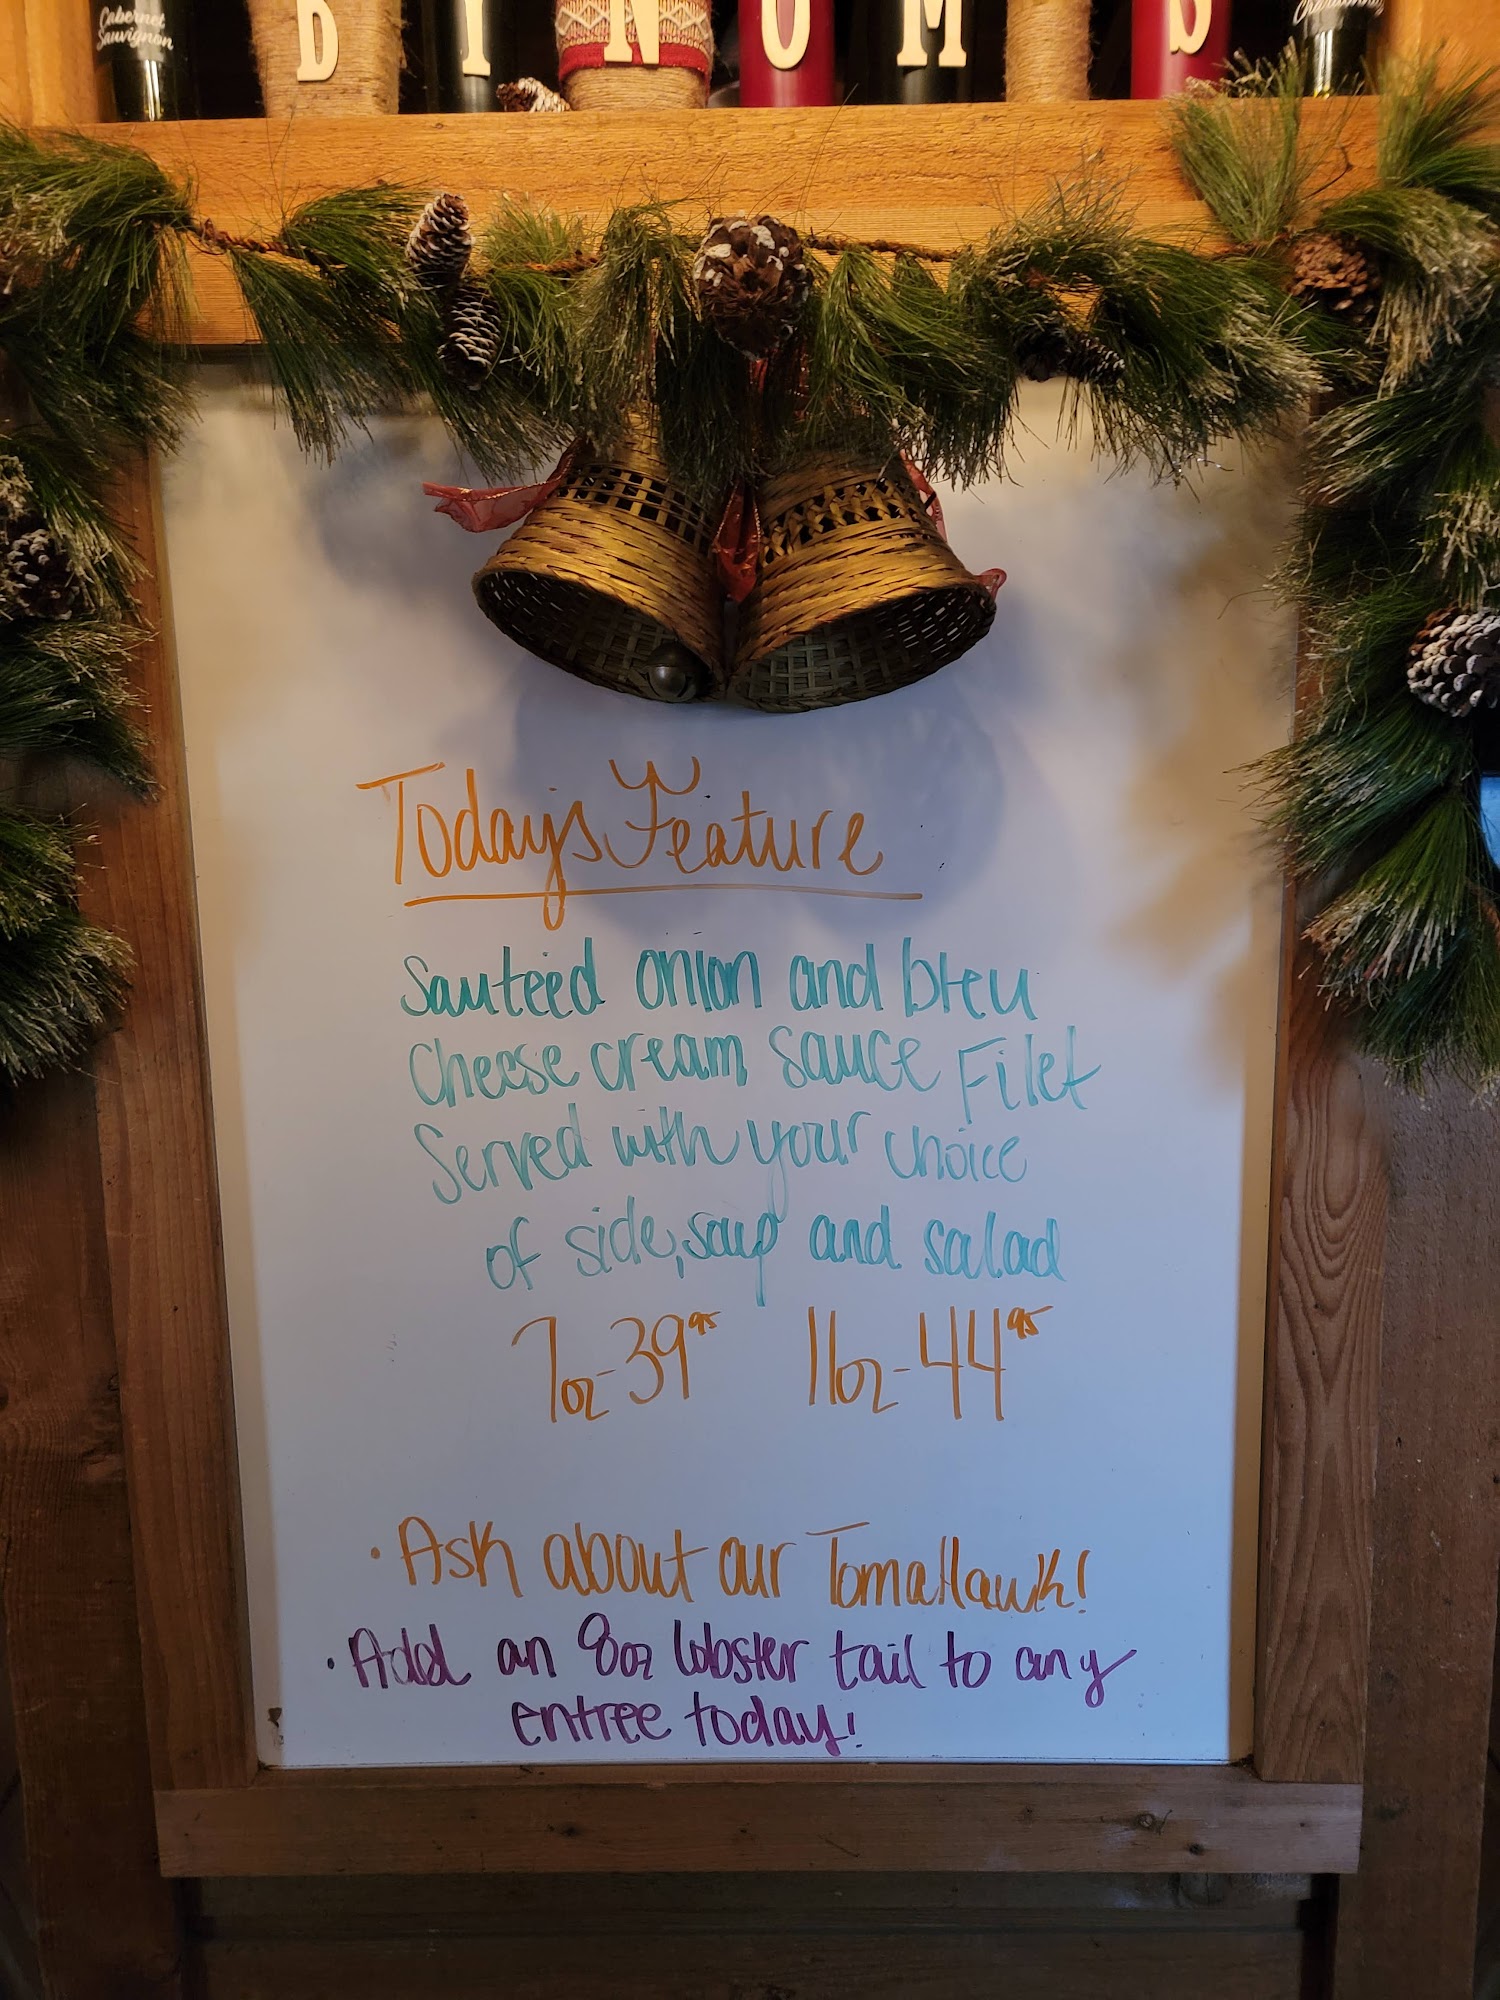 Cabernet
Sauvignon
B Y N O M S
Chardonnay
Today's Feature
Sauteed onion and bleu
Cheese cream sauce Filet
Served with your choice
of side, soup and salad
7oz-39⁹⁵ 11oz-44⁹⁵
· Ask about our TomaHawk!
· Add an 8oz lobster tail to any
entree today!